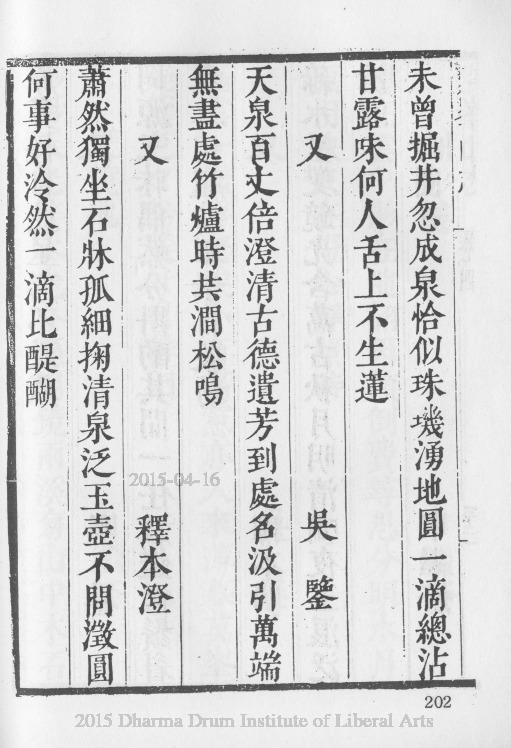 未曾掘井忽成泉恰似珠璣湧地圓一滴總沾
甘露味何人舌上不生蓮
又 吳鑒
天泉百丈倍澄清古德遺芳到處名汲引萬端
無盡處竹爐時共澗松鳴
又 釋本澄
蕭然獨坐石牀孤細掬清泉泛玉壺不問澂圓
何事好泠然一滴比醍醐
2015-04-16
202
2015 Dharma Drum Institute of Liberal Arts